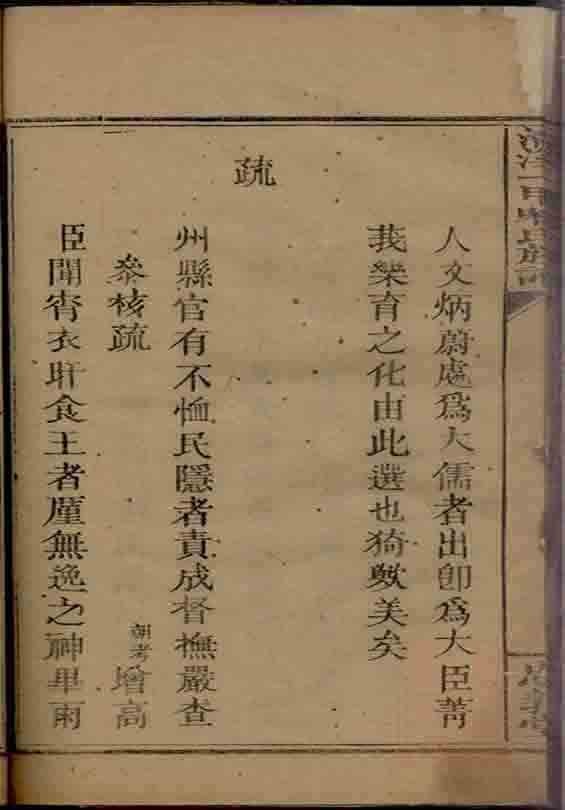 人文炳蔚處爲大儒者出卽爲大臣菁
莪樂育之化由此選也猗歟美矣
疏
州縣官有不恤民隱者責成督撫嚴查
叅核疏
朝考
增高
臣聞宵衣旰食王者廑無逸之神畢雨